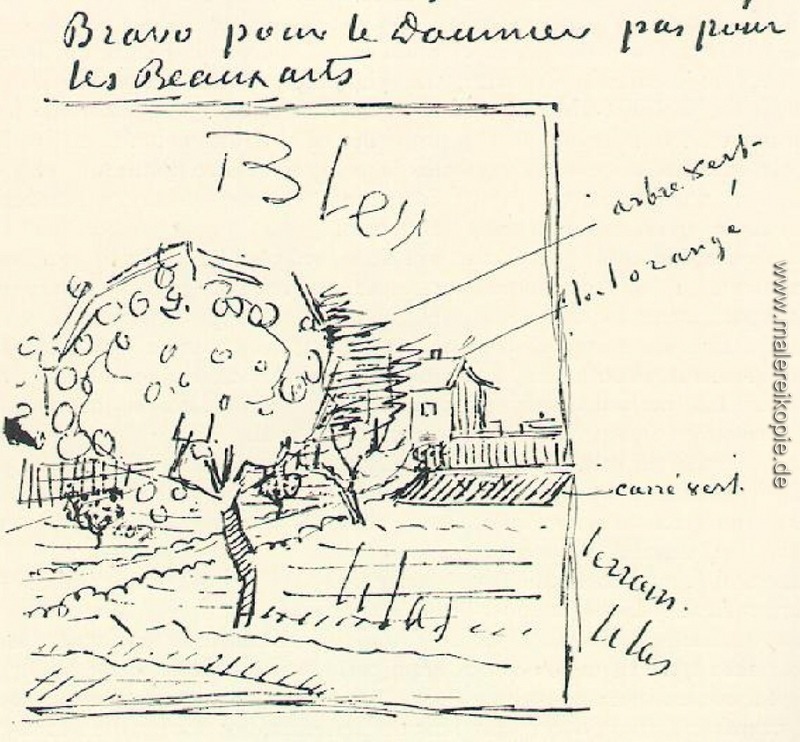 Bravo pour le Daumier pas pour
les Beaux arts
Bleu
arbre vert
orangé
carré vert.
terrain.
lilas
www.malereikopie.de